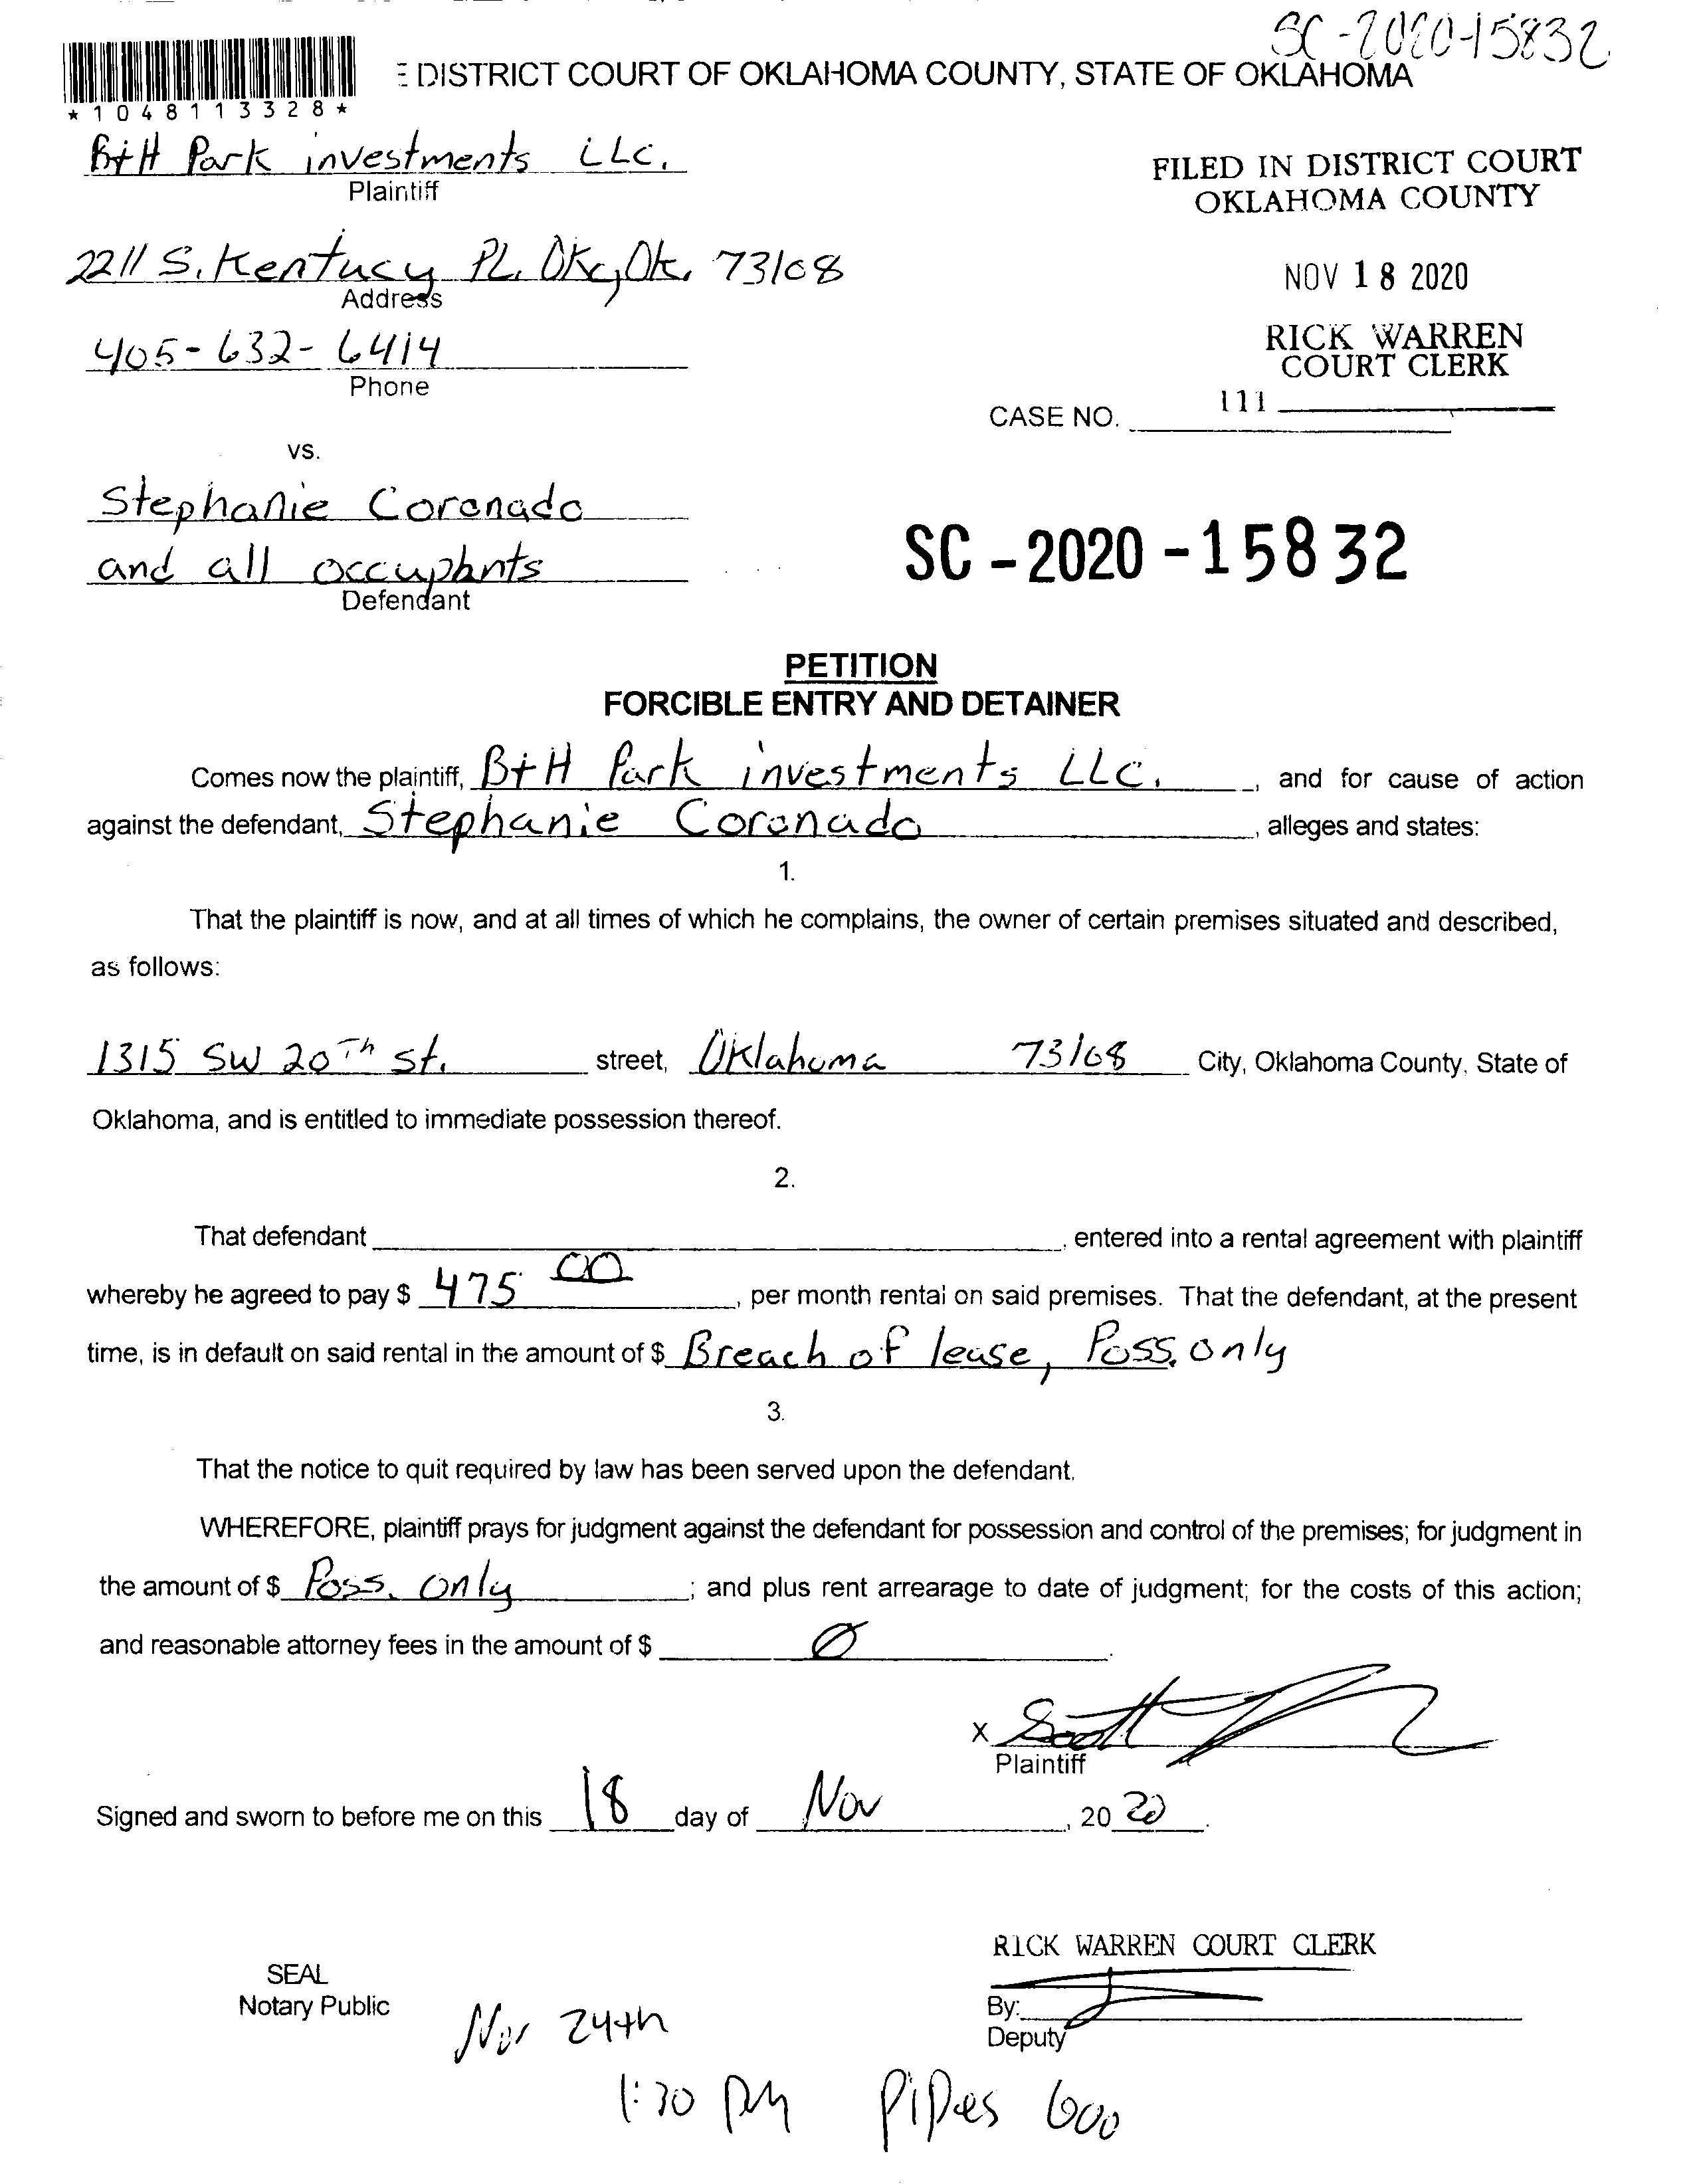 SC-2020-15832
E DISTRICT COURT OF OKLAHOMA COUNTY, STATE OF OKLAHOMA
*1048113328*
B+H Park investments LLC.
Plaintiff
FILED IN DISTRICT COURT
OKLAHOMA COUNTY
2211 S. Kentucy PL. OKC, Ok. 73108
Address
NOV 18 2020
405-632-6414
Phone
RICK WARREN
COURT CLERK
111
CASE NO.
vs.
Stephanie Coronado
and all occupants
Defendant
SC-2020-15832
PETITION
FORCIBLE ENTRY AND DETAINER
Comes now the plaintiff, B+H Park investments LLC. , and for cause of action
against the defendant, Stephanie Coronado , alleges and states:
1.
That the plaintiff is now, and at all times of which he complains, the owner of certain premises situated and described,
as follows:
1315 SW 20Th St. street, Oklahoma 73108 City, Oklahoma County, State of
Oklahoma, and is entitled to immediate possession thereof.
2.
That defendant , entered into a rental agreement with plaintiff
whereby he agreed to pay $ 475 00 , per month rental on said premises. That the defendant, at the present
time, is in default on said rental in the amount of $ Breach of lease, Poss. only
3.
That the notice to quit required by law has been served upon the defendant.
WHEREFORE, plaintiff prays for judgment against the defendant for possession and control of the premises; for judgment in
the amount of $ Poss. only ; and plus rent arrearage to date of judgment; for the costs of this action;
and reasonable attorney fees in the amount of $ 0 .
X Scott
Plaintiff
Signed and sworn to before me on this 18 day of Nov , 20 20 .
RICK WARREN COURT CLERK
SEAL
Notary Public
By:
Deputy
Nov 24th
1:30 PM Pipes 600